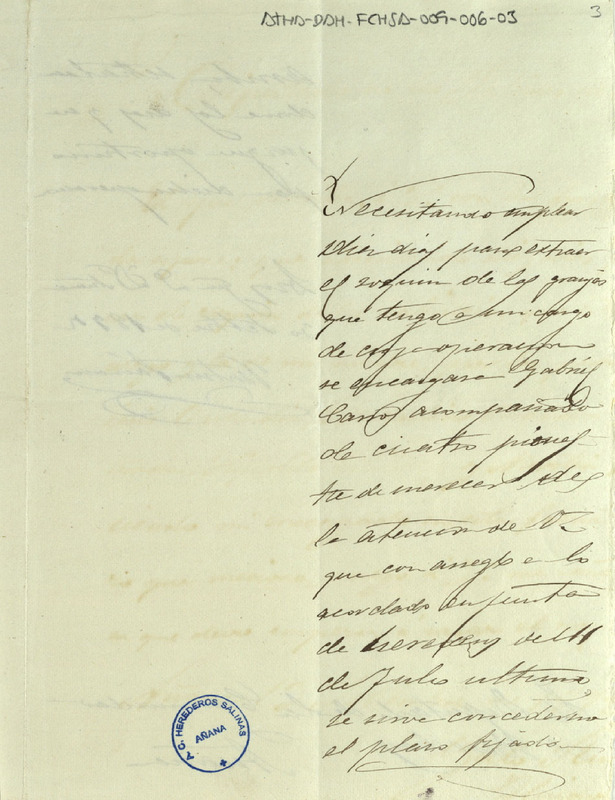 ATHA-DAH-FCHSA-009-006-03
3
Necesitando emplear
diez dias para extraer
el de las granjas
que tengo a mi cargo
de cuya operacion
se encargará Gabriel
acompañado
de cuatro piones
he de merecer de
la atencion de V.
que con arreglo a lo
acordado en junta
de herederos del 11
de Julio ultimo,
se sirva concederme
el plazo fijado.
A. C. HEREDEROS SALINAS
AÑANA